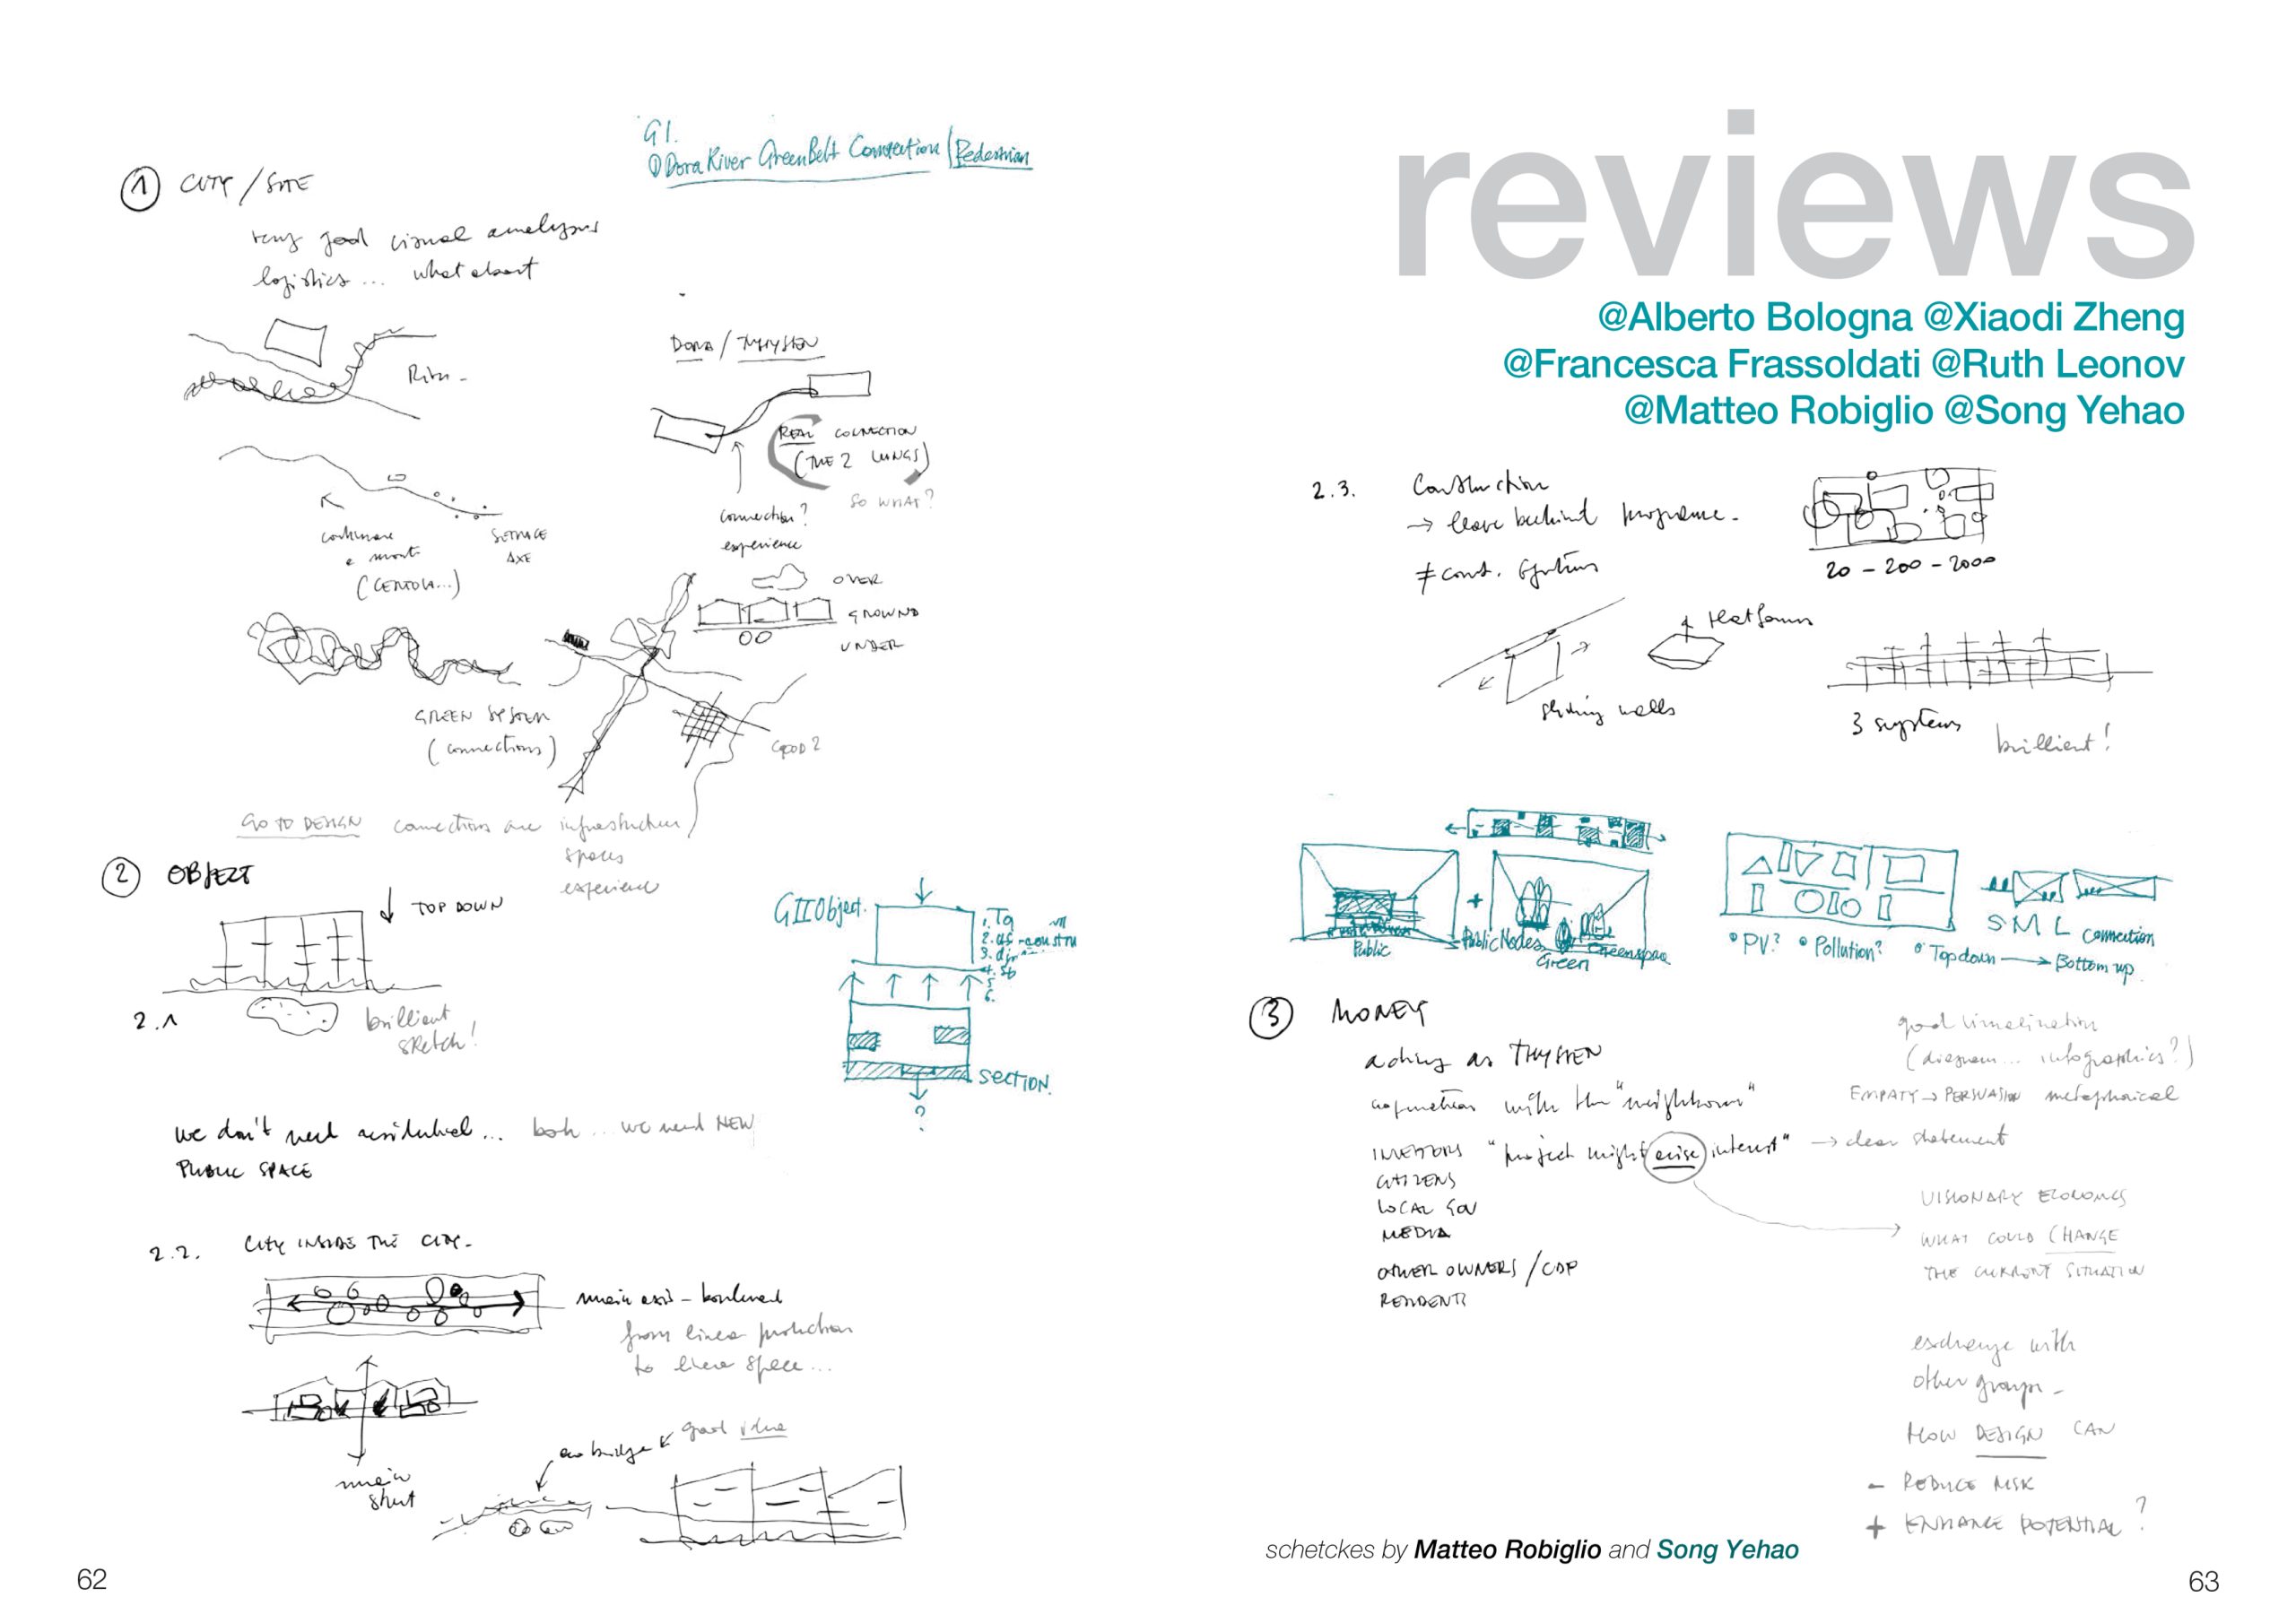 G1.
① Dora River GreenBelt Connection / Pedestrian
① CITY / SITE
very good visual analysis
logistics ... what about
River
DORA / THYSSEN
REAL CONNECTION
(THE 2 LUNGS)
SO WHAT?
connection?
experience
continuare
a
AXE
OVER
GROUND
UNDER
GREEN SYSTEM
(connections)
GOOD?
GO TO DESIGN connections are infrastructures /
spaces
experience
② OBJECT
TOP DOWN
2.1
brilliant
sketch!
GII Object.
1.
2.
3.
4.
5.
6.
SECTION.
?
we don't need residential... both ... we need NEW
PUBLIC SPACE
2.2. CITY INSIDE THE CITY.
main axis - boulevard
from linear production
to linear space...
main
street
eco bridge good idea
62
reviews
@Alberto Bologna @Xiaodi Zheng
@Francesca Frassoldati @Ruth Leonov
@Matteo Robiglio @Song Yehao
2.3. Construction
→ leave behind programme.
≠ const. systems
20 - 200 - 2000
platforms
sliding walls
3 systems
brilliant!
+
Public
Public Nodes
Green
Greenspace
S M L Connection
• PV? • Pollution? • Top down → Bottom up
③ MONEY
acting as THYSSEN
with the "neighbours"
INVESTORS "project might arise interest" → clear statement
CITIZENS
LOCAL GOV
MEDIA
OTHER OWNERS / CDP
RESIDENTS
good
(diagram... infographics?)
EMPATY → PERSUASION metaphorical
VISIONARY ECONOMICS
WHAT COULD CHANGE
THE CURRENT SITUATION
exchange with
other groups -
HOW DESIGN CAN
- REDUCE RISK
+ ENHANCE POTENTIAL ?
schetckes by Matteo Robiglio and Song Yehao
63